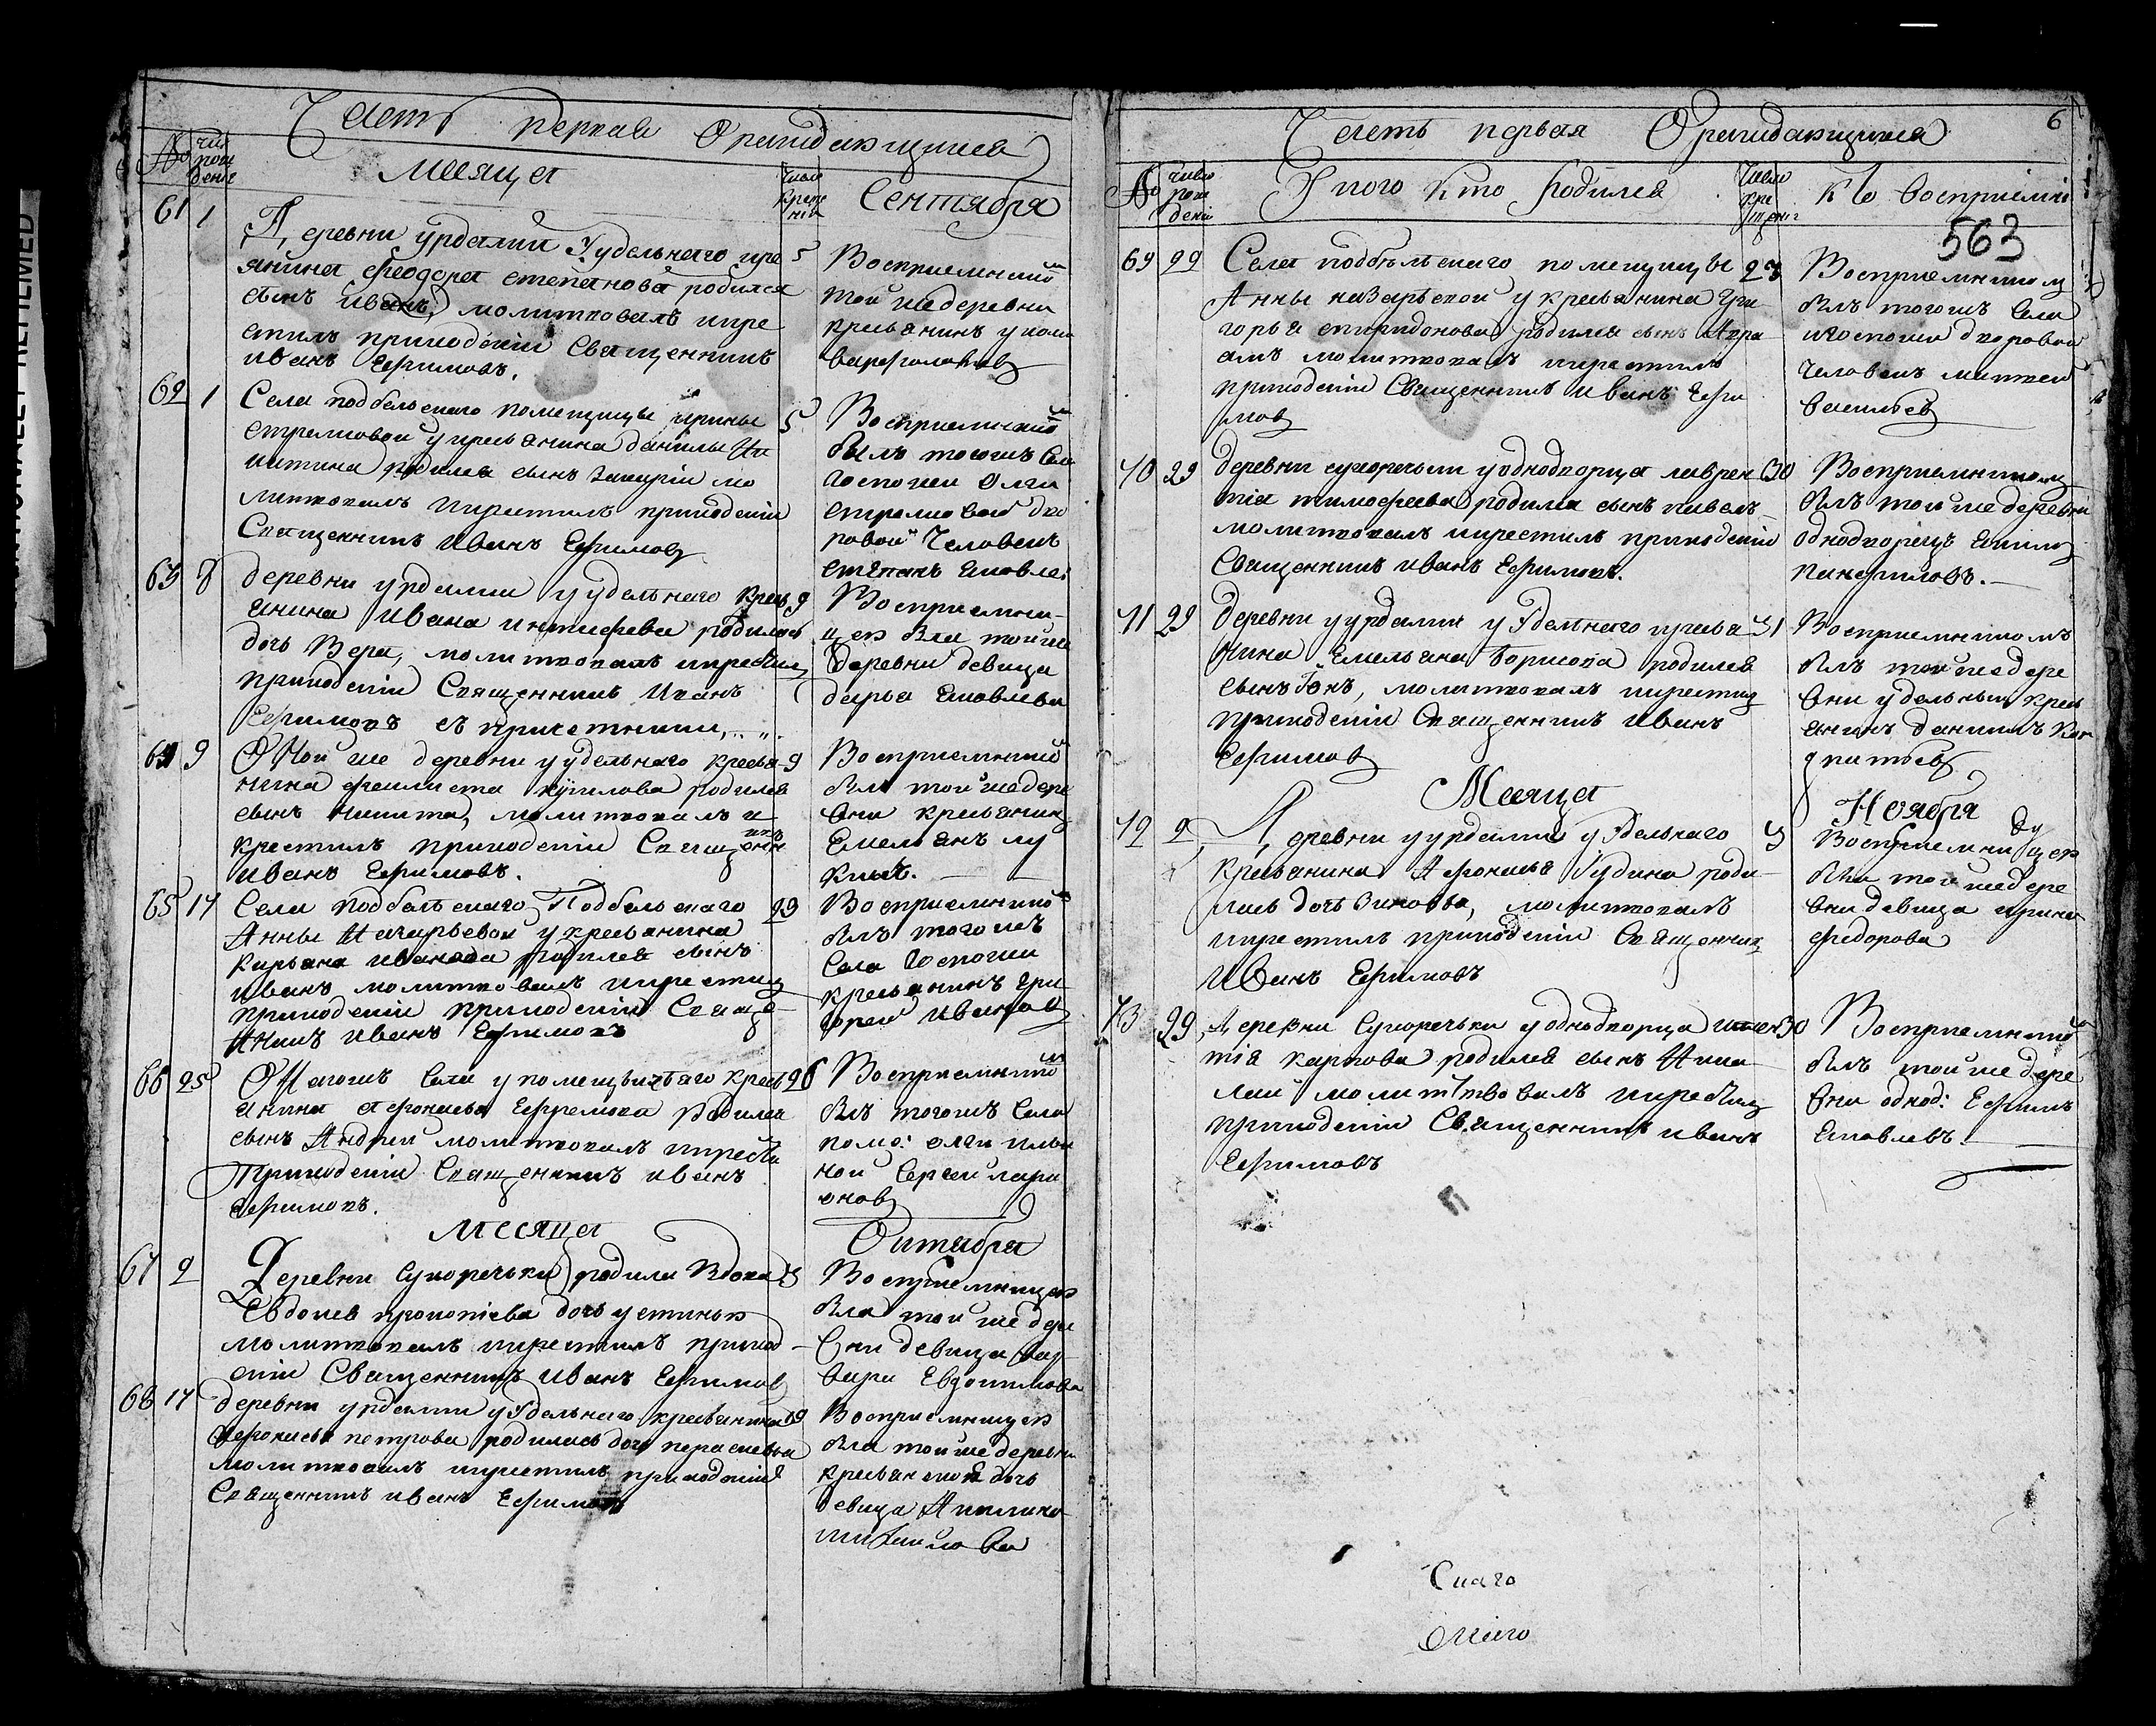 Часть первая О раждающихся
№
Число рождения
Месяца
Число крещения
Сентября
61 1
Деревни урдалии у удельнаго кре
янина феодора степанова родился
сынъ иванъ, молитвовалъ и кре
стилъ приходскій Священникъ
иванъ Ефимовъ.
5
Восприемникомъ
той же деревни
крестьянинъ
62 1
Села подбельскаго помещицы ирины
стрелковой у крестьянина данилы Ни
китина родился сынъ Захарій мо
литвовалъ и крестилъ приходскій
Священникъ иванъ Ефимовъ
5
Восприемникомъ
былъ тогожъ Села
госпожи Олги
стрелковой дво
ровой Человекъ
степанъ яковлев
63 8
деревни урдалии у удельнаго кресть
янина ивана родилась
дочь Вера, молитвовалъ и крестилъ
приходскій Священникъ иванъ
Ефимовъ съ причетники
9
Восприемни
цею была той же
деревни девица
дарья яковлева
64 9
Той же деревни у удельнаго крестья
нина родился
сынъ никита, молитвовалъ и
крестилъ приходскій Священникъ
иванъ Ефимовъ.
9
Восприемникомъ
былъ той же дере
вни крестьянинъ
Емельянъ лу
кинъ.
65 17
Села подбельскаго Подбельскаго
Анны Назарьевой у крестьянина
Кирьяна иванова родился сынъ
иванъ молитвовалъ и крестилъ
приходскій приходскій Свяще
нникъ иванъ Ефимовъ
23
Восприемникомъ
былъ тогожъ
Села госпожи
крестьянинъ гри
горей ивановъ
66 25
Тогожъ Села у помещичьяго кресть
янина афонасья Ефремова родился
сынъ Андрей молитвовалъ и крестил
приходскій Священникъ иванъ
Ефимовъ.
26
Восприемникомъ
былъ тогожъ Села
поме: олги ильи
ной Сергей лари
оновъ
Месяца
Октября
67 2
Деревни Сухоречьки родила Вдова
Евдокея прокопіева дочь устинью
молитвовалъ и крестилъ приход
скій Священникъ иванъ Ефимовъ
3
Восприемницею
была той же дере
вни девица вар
вара Евдокимова
68 17
деревни урдалии у удельнаго крестьянина
Афонасья петрова родилась дочь парасковья
молитвовалъ и крестилъ приходскій
Священникъ иванъ Ефимовъ
19
Восприемницею
была той же деревни
крестьянской дочь
девица Акилина
михаилова
Часть первая О раждающихся
6
№
Число рождения
У кого кто родился
Число крещения
Кто восприемни
563
69 22
Села подбельскаго помещицы
Анны назарьевой у крестьянина гри
горья спиридонова родился сынъ Авра
амъ молитвовалъ и крестилъ
приходскій Священникъ иванъ Ефи
мовъ
23
Восприемникомъ
былъ тогожъ Села
и госпожи дворовой
Человекъ матвей
васильевъ
70 29
деревни сухоречьки у однодворца лаврен
тія тимофеева родился сынъ павелъ
молитвовалъ и крестилъ приходскій
Священникъ иванъ Ефимовъ.
30
Восприемникомъ
былъ той же деревни
однодворецъ
панфиловъ.
71 29
деревни у урдалии у удельнаго крестья
нина Емельяна борисова родился
сынъ Іонъ, молитвовалъ и крестилъ
приходскій Священникъ иванъ
Ефимовъ
31
Восприемникомъ
былъ той же дере
вни удельный кресть
янинъ данилъ Кон
дратьевъ
Месяца
Ноября
72 2
Деревни у урдалии у удельнаго
крестьянина Афонасья Гудина роди
лась дочь Зиновья, молитвовалъ
и крестилъ приходскій Священникъ
Иванъ Ефимовъ
3
Восприемницею
была той же дере
вни девица ирина
федорова
73 29
Деревни Сухоречьки у однодворца игна
тія карпова родился сынъ Нико
лай молитствовалъ и крестилъ
приходскій Священникъ иванъ
Ефимовъ
30
Восприемникомъ
былъ той же дере
вни однод: Ефимъ
яковлевъ.